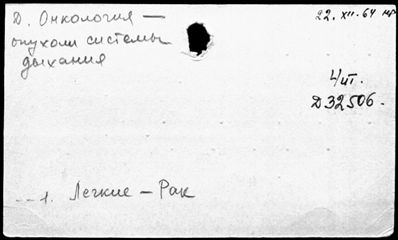 Д. Онкология —
опухоли системы
дыхания
22.XII.64
4/III.
Д32506.
1. Легкие — Рак